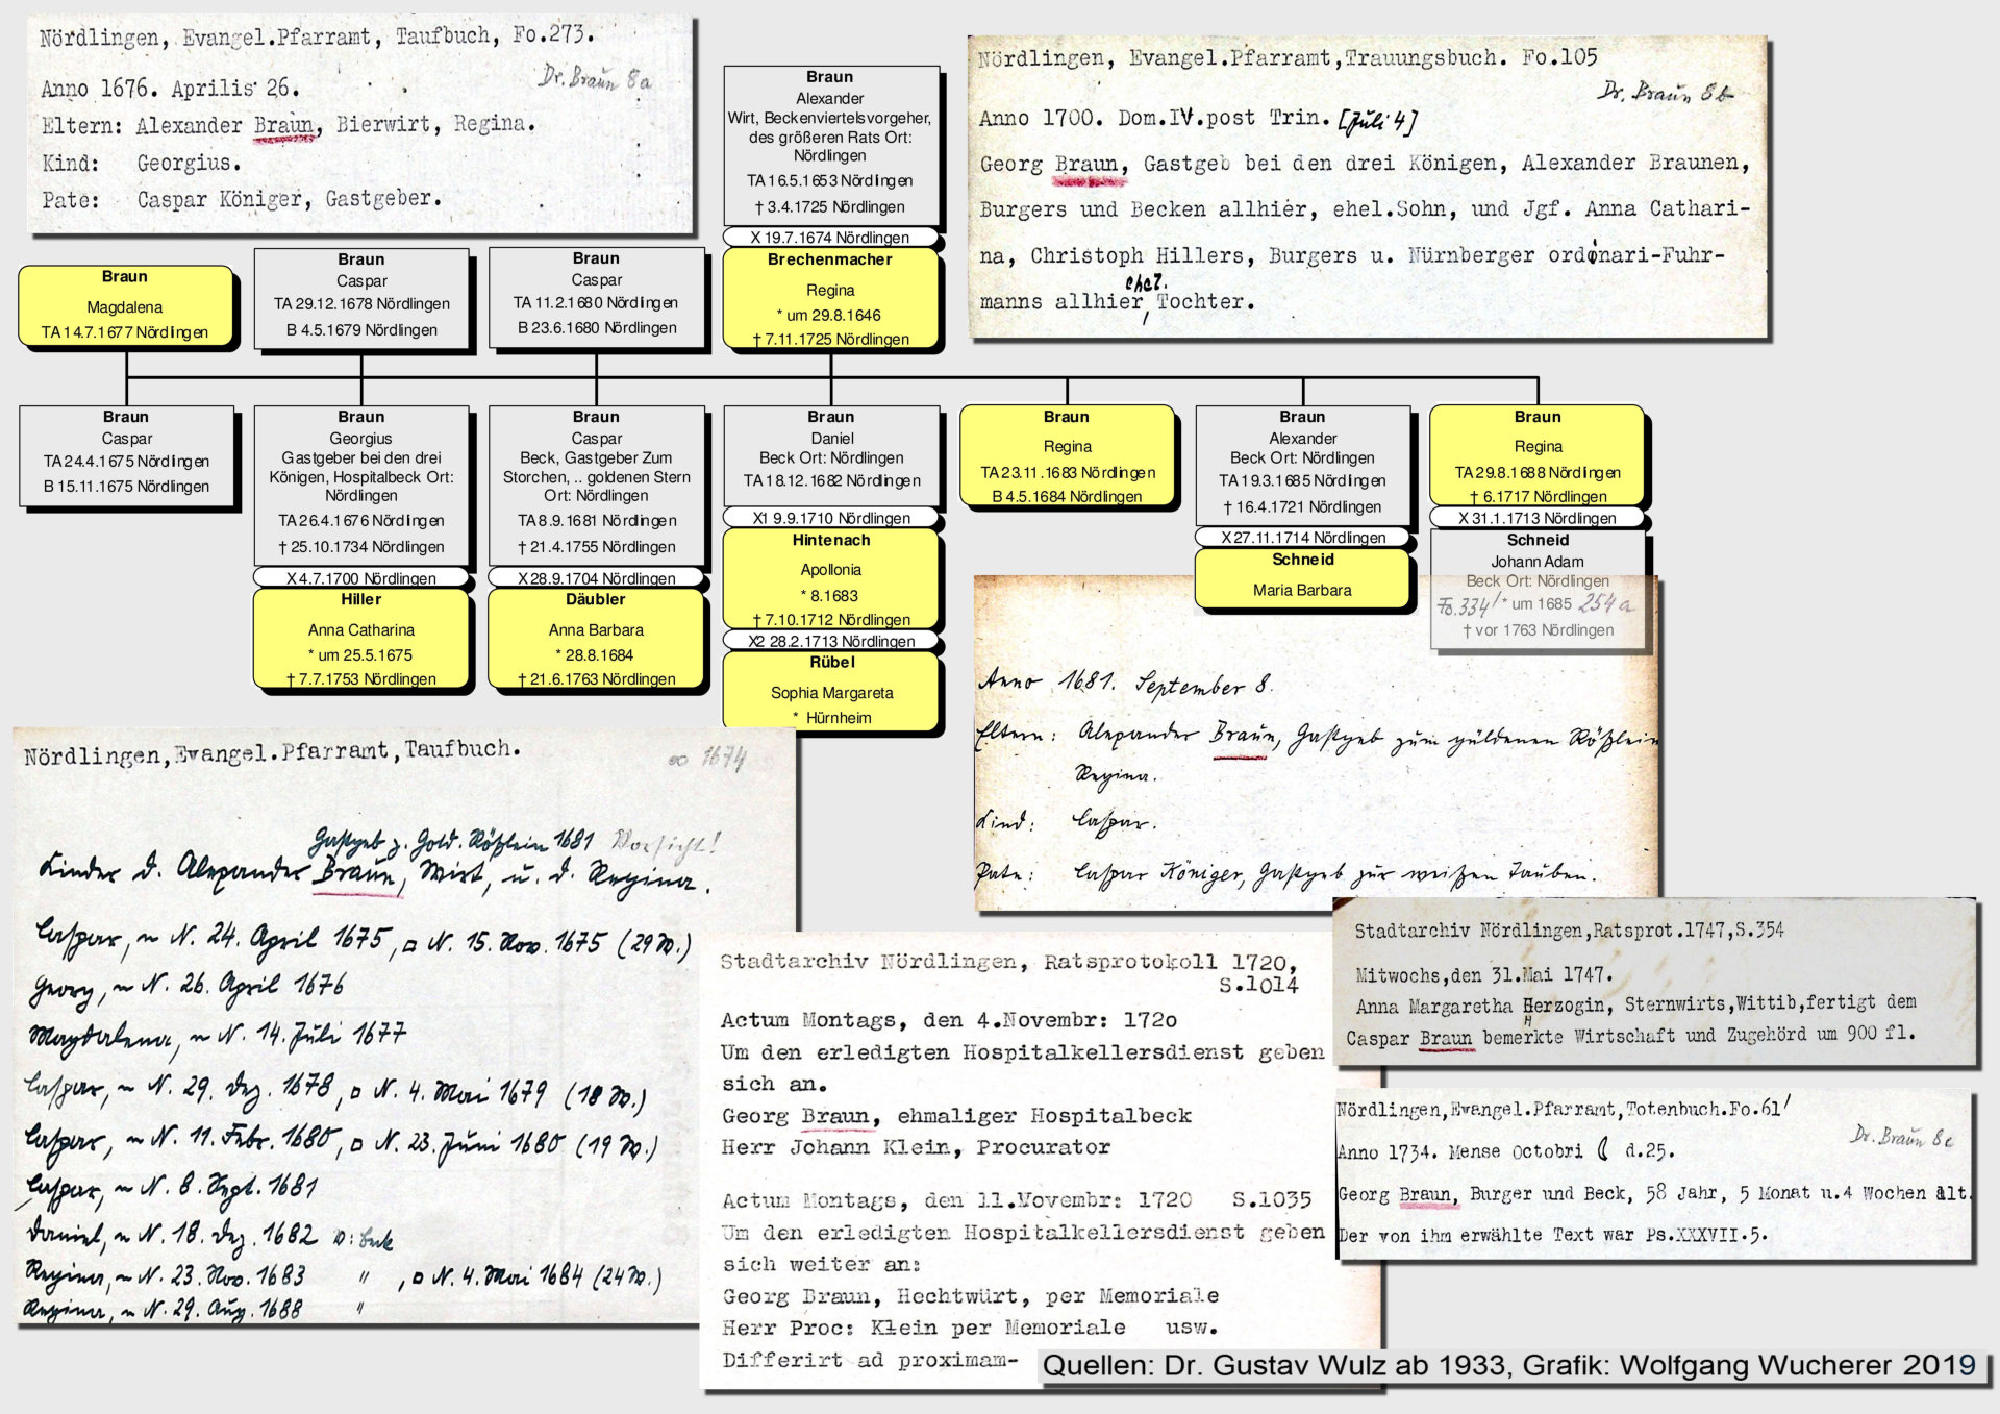 Nördlingen, Evangel.Pfarramt, Taufbuch, Fo.273.
Dr. Braun 8a
Anno 1676. Aprilis 26.
Eltern: Alexander Braun, Bierwirt, Regina.
Kind: Georgius.
Pate: Caspar Königer, Gastgeber.
Braun
Alexander
Wirt, Beckenviertelsvorgeher,
des größeren Rats Ort:
Nördlingen
TA 16.5.1653 Nördlingen
† 3.4.1725 Nördlingen
X 19.7.1674 Nördlingen
Brechenmacher
Regina
* um 29.8.1646
† 7.11.1725 Nördlingen
Nördlingen, Evangel.Pfarramt,Trauungsbuch. Fo.105
Dr. Braun 8b
Anno 1700. Dom.IV.post Trin. [Juli 4]
Georg Braun, Gastgeb bei den drei Königen, Alexander Braunen,
Burgers und Becken allhier, ehel.Sohn, und Jgf. Anna Cathari-
na, Christoph Hillers, Burgers u. Nürnberger ordinari-Fuhr-
ehel.
manns allhier, Tochter.
Braun
Magdalena
TA 14.7.1677 Nördlingen
Braun
Caspar
TA 29.12.1678 Nördlingen
B 4.5.1679 Nördlingen
Braun
Caspar
TA 11.2.1680 Nördlingen
B 23.6.1680 Nördlingen
Braun
Caspar
TA 24.4.1675 Nördlingen
B 15.11.1675 Nördlingen
Braun
Georgius
Gastgeber bei den drei
Königen, Hospitalbeck Ort:
Nördlingen
TA 26.4.1676 Nördlingen
† 25.10.1734 Nördlingen
X 4.7.1700 Nördlingen
Hiller
Anna Catharina
* um 25.5.1675
† 7.7.1753 Nördlingen
Braun
Caspar
Beck, Gastgeber Zum
Storchen, .. goldenen Stern
Ort: Nördlingen
TA 8.9.1681 Nördlingen
† 21.4.1755 Nördlingen
X 28.9.1704 Nördlingen
Däubler
Anna Barbara
* 28.8.1684
† 21.6.1763 Nördlingen
Braun
Daniel
Beck Ort: Nördlingen
TA 18.12.1682 Nördlingen
X1 9.9.1710 Nördlingen
Hintenach
Apollonia
* 8.1683
† 7.10.1712 Nördlingen
X2 28.2.1713 Nördlingen
Rübel
Sophia Margareta
* Hürnheim
Braun
Regina
TA 23.11.1683 Nördlingen
B 4.5.1684 Nördlingen
Braun
Alexander
Beck Ort: Nördlingen
TA 19.3.1685 Nördlingen
† 16.4.1721 Nördlingen
X 27.11.1714 Nördlingen
Schneid
Maria Barbara
Braun
Regina
TA 29.8.1688 Nördlingen
† 6.1717 Nördlingen
X 31.1.1713 Nördlingen
Schneid
Johann Adam
Beck Ort: Nördlingen
* um 1685
† vor 1763 Nördlingen
Fo.334' 254a
Anno 1681. September 8.
Eltern: Alexander Braun, Gastgeb zum güldenen Rößlein
Regina.
Kind: Caspar.
Pate: Caspar Königer, Gastgeb zur weißen Tauben.
Nördlingen,Evangel.Pfarramt,Taufbuch.
∞ 1674
Gastgeb z. Gold. Rößlein 1681 Vorsicht!
Kinder d. Alexander Braun, Wirt, u. d. Regina.
Caspar, ~ N. 24. April 1675, □ N. 15. Nov. 1675 (29 W.)
Georg, ~ N. 26. April 1676
Magdalena, ~ N. 14. Juli 1677
Caspar, ~ N. 29. Dez. 1678, □ N. 4. Mai 1679 (18 W.)
Caspar, ~ N. 11. Febr. 1680, □ N. 23. Juni 1680 (19 W.)
Caspar, ~ N. 8. Sept. 1681
Daniel, ~ N. 18. Dez. 1682
Regina, ~ N. 23. Nov. 1683 " , □ N. 4. Mai 1684 (24 W.)
Regina, ~ N. 29. Aug. 1688 "
Stadtarchiv Nördlingen, Ratsprotokoll 1720,
S.1014
Actum Montags, den 4.Novembr: 1720
Um den erledigten Hospitalkellersdienst geben
sich an.
Georg Braun, ehmaliger Hospitalbeck
Herr Johann Klein, Procurator
Actum Montags, den 11.Novembr: 1720 S.1035
Um den erledigten Hospitalkellersdienst geben
sich weiter an:
Georg Braun, Hechtwürt, per Memoriale
Herr Proc: Klein per Memoriale usw.
Differirt ad proximam-
Stadtarchiv Nördlingen,Ratsprot.1747,S.354
Mitwochs,den 31.Mai 1747.
Anna Margaretha Herzogin, Sternwirts,Wittib,fertigt dem
Caspar Braun bemerkte Wirtschaft und Zugehörd um 900 fl.
Nördlingen,Evangel.Pfarramt,Totenbuch.Fo.61'
Dr. Braun 8c
Anno 1734. Mense Octobri d.25.
Georg Braun, Burger und Beck, 58 Jahr, 5 Monat u.4 Wochen alt.
Der von ihm erwählte Text war Ps.XXXVII.5.
Quellen: Dr. Gustav Wulz ab 1933, Grafik: Wolfgang Wucherer 2019